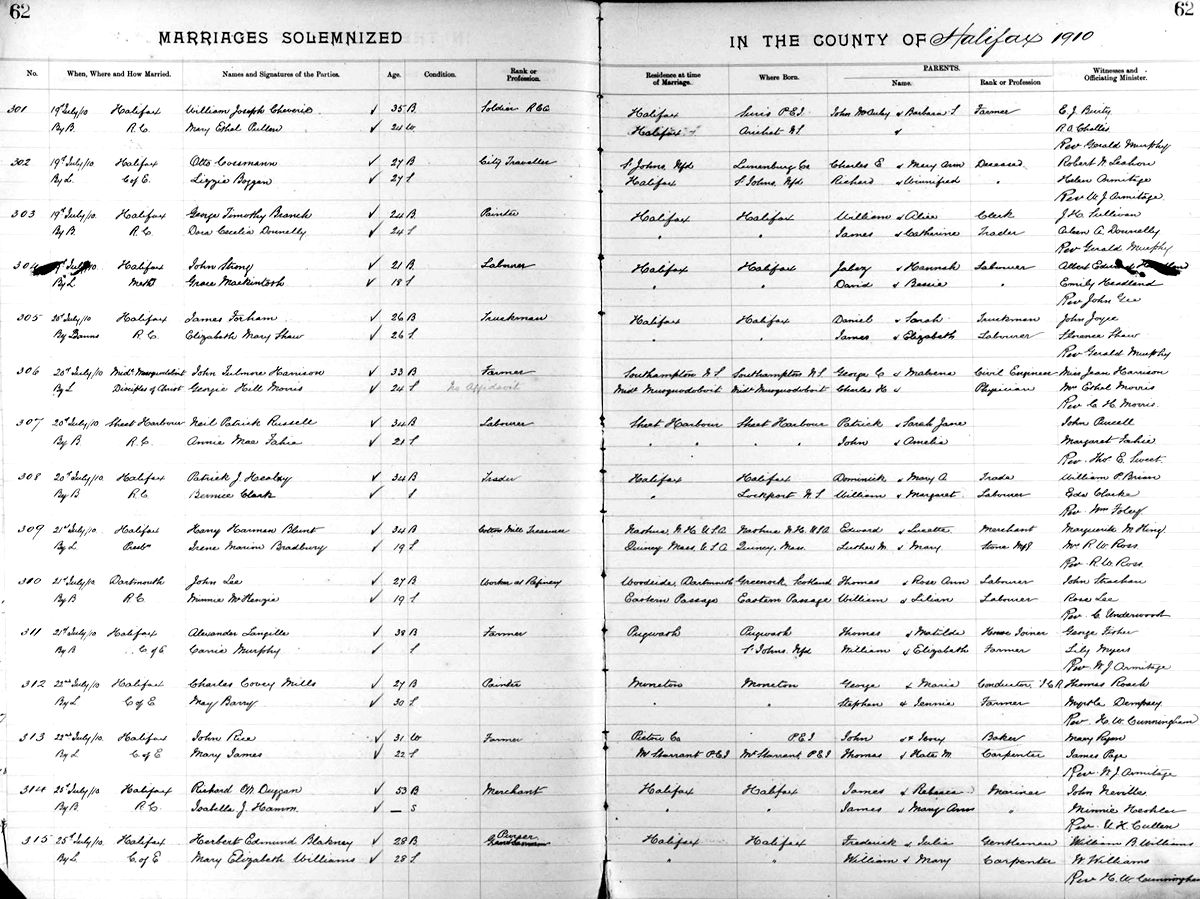 62
62
MARRIAGES SOLEMNIZED
IN THE COUNTY OF Halifax 1910
No. When, Where and How Married. Names and Signatures of the Parties. Age. Condition. Rank or Profession. Residence at time of Marriage. Where Born. PARENTS. Name. Rank or Profession Witnesses and Officiating Minister.
301 19th July/10 Halifax William Joseph Cheverie √ 35 B Soldier R C Halifax Souris P E I John & Barbara S Farmer E. J.
By B R.C. Mary Ethel Pullen √ 24 W Halifax Arichat N S & R A
Rev Gerald Murphy
302 19th July/10 Halifax Otto Cossmann √ 27 B City Traveller St Johns, Nfd Lunenburg Co Charles E & Mary Ann Deceased Robert
By L. C of E. Lizzie Boggan √ 27 S Halifax St Johns, Nfd Richard & Winnifred " Helen Armitage
Rev W J Armitage
303 19th July/10 Halifax George Timothy Beanch √ 24 B Painter Halifax Halifax William & Alice Clerk J. H. Sullivan
By B R.C. Dora Cecelia Donnelly √ 24 S " " James & Catherine Trader Aileen A Donnelly
Rev Gerald Murphy
304 July/10 Halifax John Strong √ 21 B Labourer Halifax Halifax Jabez & Hannah Labourer Albert
By L Meth Grace Mackintosh √ 18 S " " David & Bessie " Emily Headland
Rev John Gee
305 20th July/10 Halifax James Forham √ 26 B Truckman Halifax Halifax Daniel & Sarah Truckman John Joyce
By Banns R.C. Elizabeth Mary Shaw √ 26 S " " James & Elizabeth Labourer Florence Shaw
Rev Gerald Murphy
306 20th July/10 Midd Musquodoboit John Fulmore Harrison √ 33 B Farmer Southampton N.S Southampton N S George C & Civil Engineer Miss Jean Harrison
By L Disciples of Christ Georgie Hill Morris √ 24 S No Affidavit Midd Musquodoboit Midd Musquodoboit Charles H & Physician Mrs Ethel Morris
Rev C. H. Morris
307 20th July/10 Sheet Harbour Neil Patrick Russell √ 34 B Labourer Sheet Harbour Sheet Harbour Patrick & Sarah Jane John
By B R.C. Annie Mae Fahie √ 21 S " " " " John & Amelia Margaret Fahie
Rev. Thos E. Sweet
308 20th July/10 Halifax Patrick J Healey √ 34 B Trader Halifax Halifax Dominick & Mary A Trade William P Brian
By B R.C. Bernice Clark √ S " Lockport N.S William & Margaret Labourer Eda Clarke
Rev Wm Foley
309 21st July/10 Halifax Harry Harmen Blunt √ 34 B Cotton Mill Treasurer Nashua N.H. U.S.A Nashua N.H. U.S.A Edward & Lucette Merchant Marguerite M King
By L Presbn Irene Marion Bradbury √ 19 S Quincy Mass. U.S.A Quincy, Mass. Luther M. & Mary Stone Mfr Mrs R W Ross
Rev. R. W. Ross
310 21st July/10 Dartmouth John Lee √ 27 B Worker at Refinery Woodside, Dartmouth Greenock Scotland Thomas & Rose Ann Labourer John Strachan
By B R.C. Minnie McKenzie √ 19 S Eastern Passage Eastern Passage William & Lilian Labourer Rose Lee
Rev. C Underwood
311 21st July/10 Halifax Alexander Langille √ 38 B Farmer Pugwash Pugwash Thomas & Matilda House Joiner George Fisher
By B C of E Carrie Murphy √ S St Johns. Nfd William & Elizabeth Farmer Lily Myers
Rev W J Armitage
312 22nd July/10 Halifax Charles Covey Mills √ 27 B Painter Moncton Moncton George & Maria Conductor, I C R Thomas Roach
By L C of E May Barry √ 30 S " " Stephen & Jennie Farmer Myrtle Dempsey
Rev. H. W. Cunningham
313 22nd July/10 Halifax John Rice √ 31 W Farmer Pictou Co P.E.I John & Baker Mary Ryan
By L C of E Mary James √ 22 S Mt Sterrant P.E.I Mt Sterrant P.E.I Thomas & Kate M. Carpenter James Page
Rev. W. J Armitage
314 25th July/10 Halifax Richard Duggan √ 53 B Merchant Halifax Halifax James & Rebecca Mariner John Neville
By B R.C. Isabella J. Hamm √ — S " " James & Mary Ann " Minnie Heckler
Rev. Cullen
315 25th July/10 Halifax Herbert Edmund Blakney √ 28 B Purser Halifax Halifax Frederick & Julia Gentleman William B Williams
By L C of E Mary Elizabeth Williams √ 28 S " " William & Mary Carpenter W Williams
Rev H. W. Cunningham